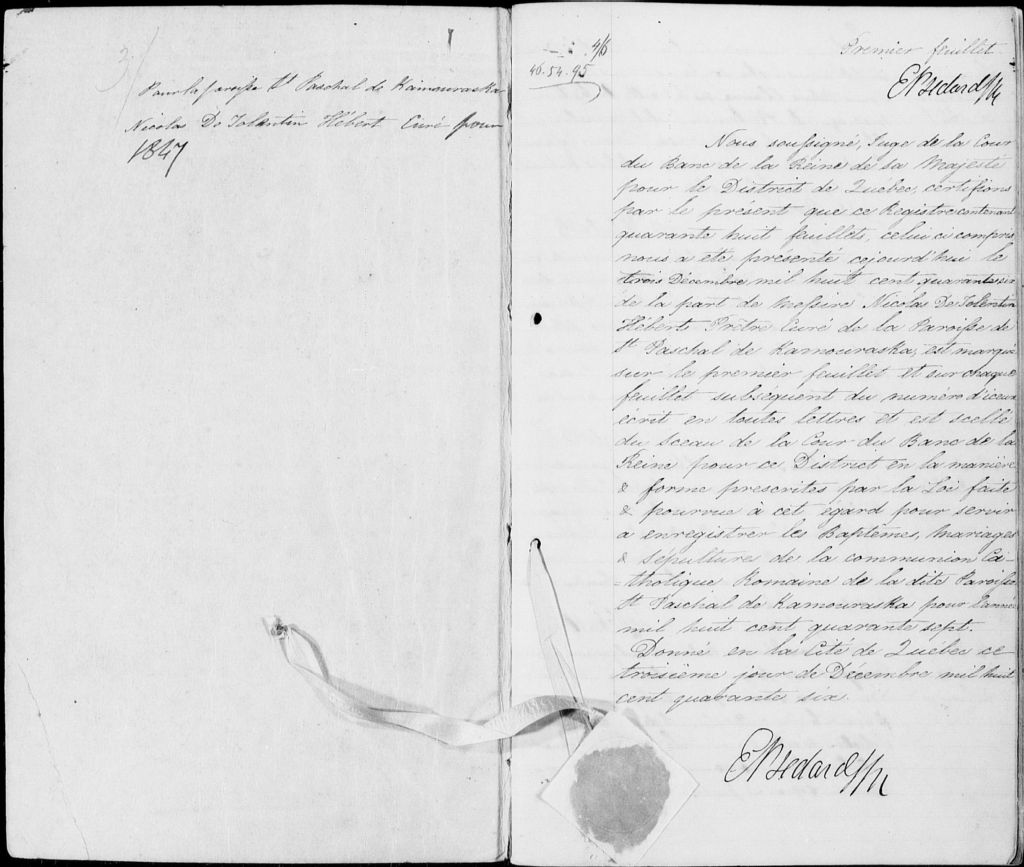 Pour la paroisse St Paschal de Kamouraska
Nicolas De Tolentin Hébert Curé pour
1847
46. 54. 95
Premier feuillet.
Nous soussigné, Juge de la Cour
du Banc de la Reine de sa Majesté
pour le District de Québec, certifions
par le présent que ce Registre contenant
quarante huit feuillets, celui ci compris
nous a été présenté cejourd'hui le
trois Décembre mil huit cent quarante six
de la part de Messire Nicolas De Tolentin
Hébert Prêtre Curé de la Paroisse de
St Paschal de Kamouraska, est marqué
sur le premier feuillet et sur chaque
feuillet subséquent du numéro d'iceux
écrit en toutes lettres et est scellé
du Sceau de la Cour du Banc de la
Reine pour ce District en la manière
& forme prescrites par la Loi faite
& pourvue à cet egard pour servir
a enregistrer les Baptêmes, Mariages
& Sépultures de la communion Ca-
-tholique Romaine de la dite Paroisse
St Paschal de Kamouraska pour l'année
mil huit cent quarante sept.
Donné en la Cité de Québec ce
troisième jour de Décembre mil huit
cent quarante six.
E Bedard